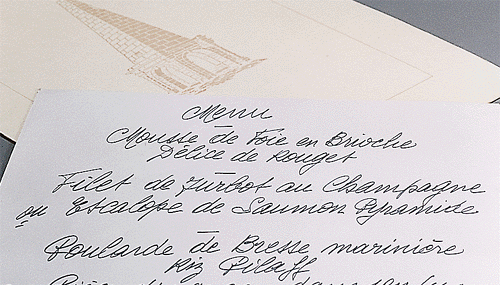 Menu
Mousse de Foie en Brioche
Délice de Rouget
Filet de Turbot au Champagne
ou Escalope de Saumon Pyramide
Poularde de Bresse marinière
Riz Pilaff